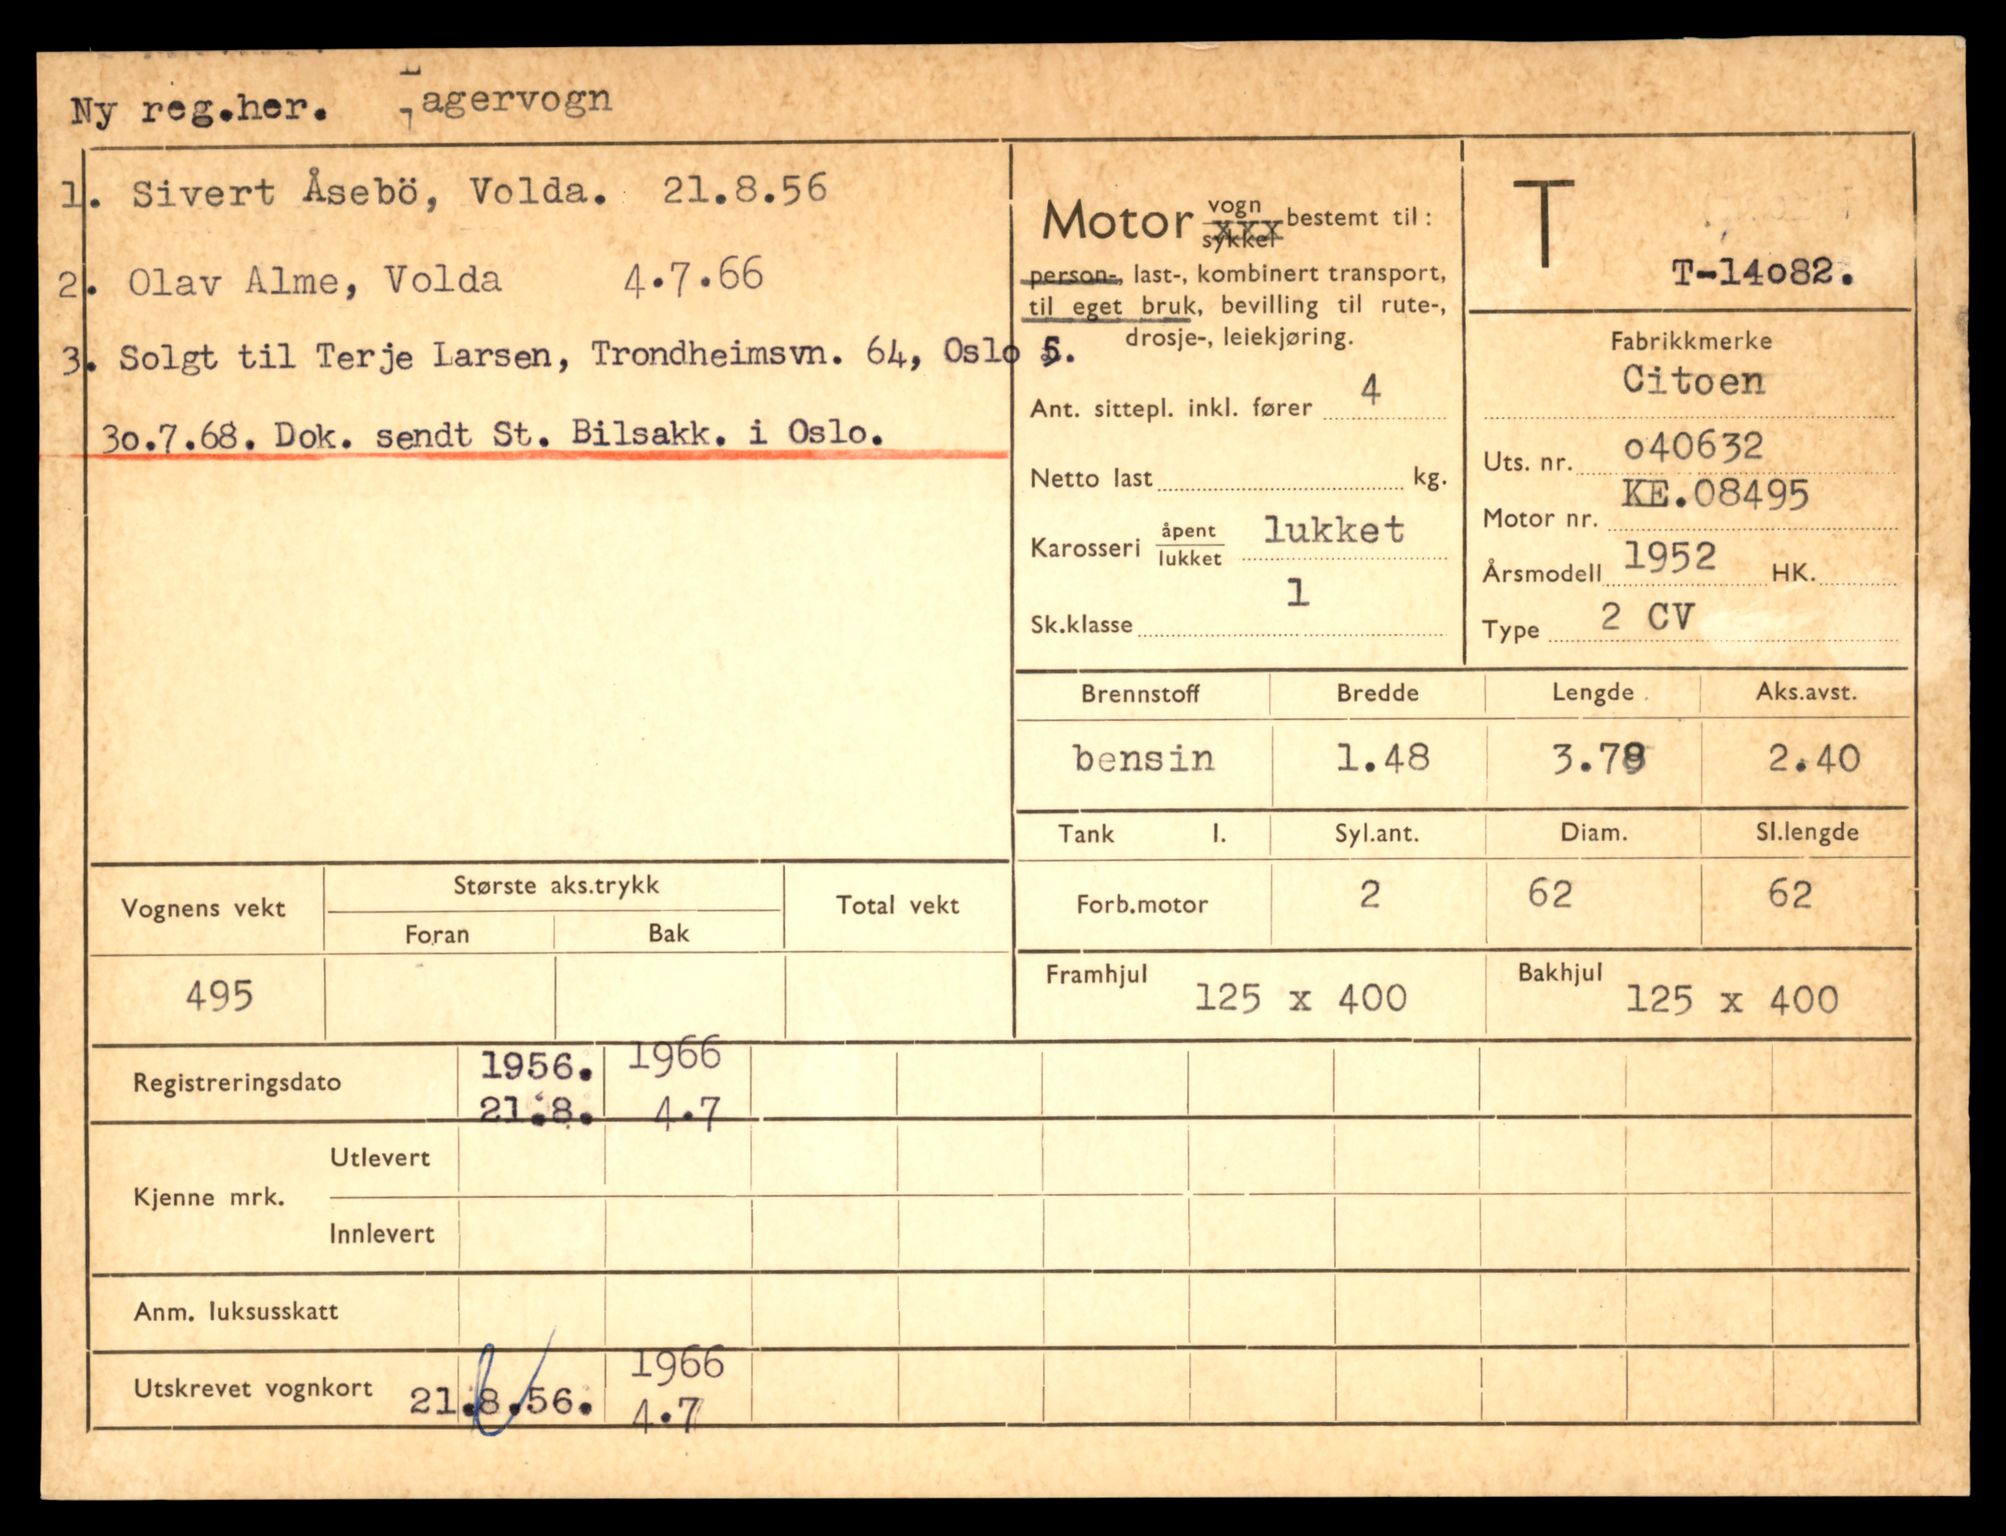 Ny reg.her. Lagervogn
1. Sivert Åsebö, Volda. 21.8.56
2. Olav Alme, Volda 4.7.66
3. Solgt til Terje Larsen, Trondheimsvn. 64, Oslo 5.
30.7.68. Dok. sendt St. Bilsakk. i Oslo.
Motor vogn xxx bestemt til :
sykkel
person-, last-, kombinert transport,
til eget bruk, bevilling til rute-,
drosje-, leiekjøring.
Ant. sittepl. inkl. fører 4
Netto last kg.
Karosseri åpent lukket
lukket
Sk.klasse 1
T
T-14o82.
Fabrikkmerke
Citoen
Uts. nr. o40632
Motor nr. KE.08495
Årsmodell 1952 HK.
Type 2 CV
Brennstoff Bredde Lengde Aks.avst.
bensin 1.48 3.78 2.40
Tank l. Syl.ant. Diam. Sl.lengde
Forb.motor 2 62 62
Framhjul 125 x 400 Bakhjul 125 x 400
Vognens vekt Største aks.trykk Total vekt
Foran Bak
495
Registreringsdato 1956. 1966
21.8. 4.7
Kjenne mrk. Utlevert
Innlevert
Anm. luksusskatt
Utskrevet vognkort 21.8.56. 1966
4.7